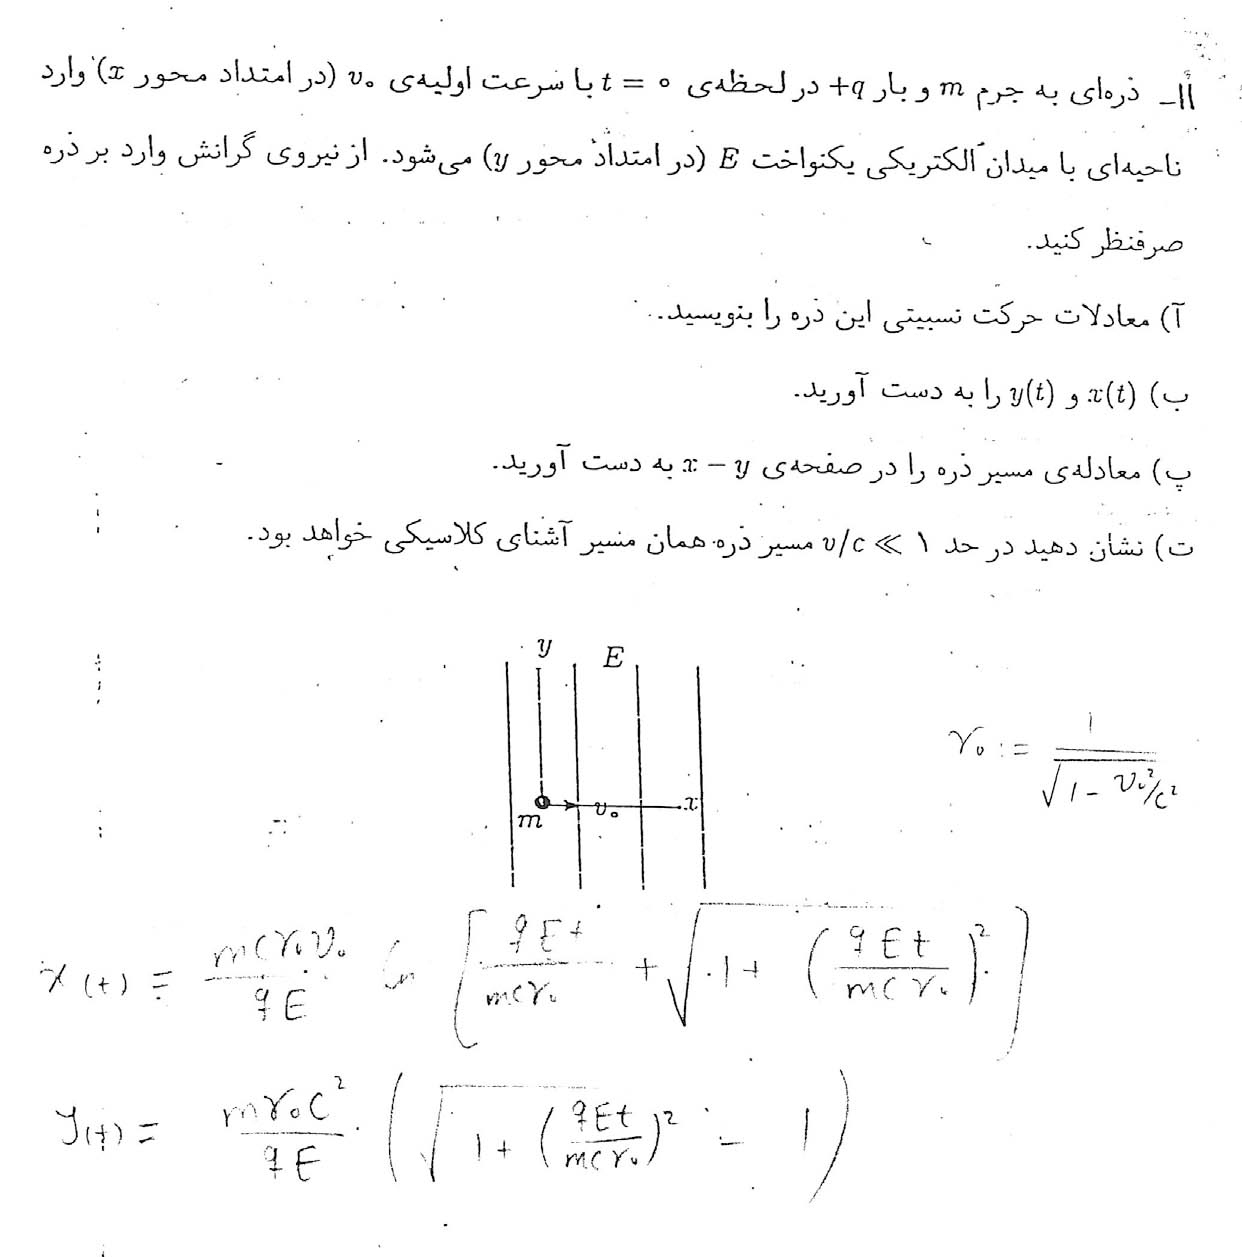 ۱۱_ ذره‌ای به جرم m و بار q+ در لحظه‌ی t = ۰ با سرعت اولیه‌ی v۰ (در امتداد محور x) وارد
ناحیه‌ای با میدان الکتریکی یکنواخت E (در امتداد محور y) می‌شود. از نیروی گرانش وارد بر ذره
صرفنظر کنید.
آ) معادلات حرکت نسبیتی این ذره را بنویسید.
ب) x(t) و y(t) را به دست آورید.
پ) معادله‌ی مسیر ذره را در صفحه‌ی x − y به دست آورید.
ت) نشان دهید در حد v/c ≪ ۱ مسیر ذره همان مسیر آشنای کلاسیکی خواهد بود.
y E
γ₀ := 1 / √(1 - v₀²/c²)
m v۰ x
x(t) = (mcγ₀v₀ / qE) Ln [ qEt / mcγ₀ + √(1 + (qEt / mcγ₀)²) ]
y(t) = (mγ₀c² / qE) ( √(1 + (qEt / mcγ₀)²) - 1 )